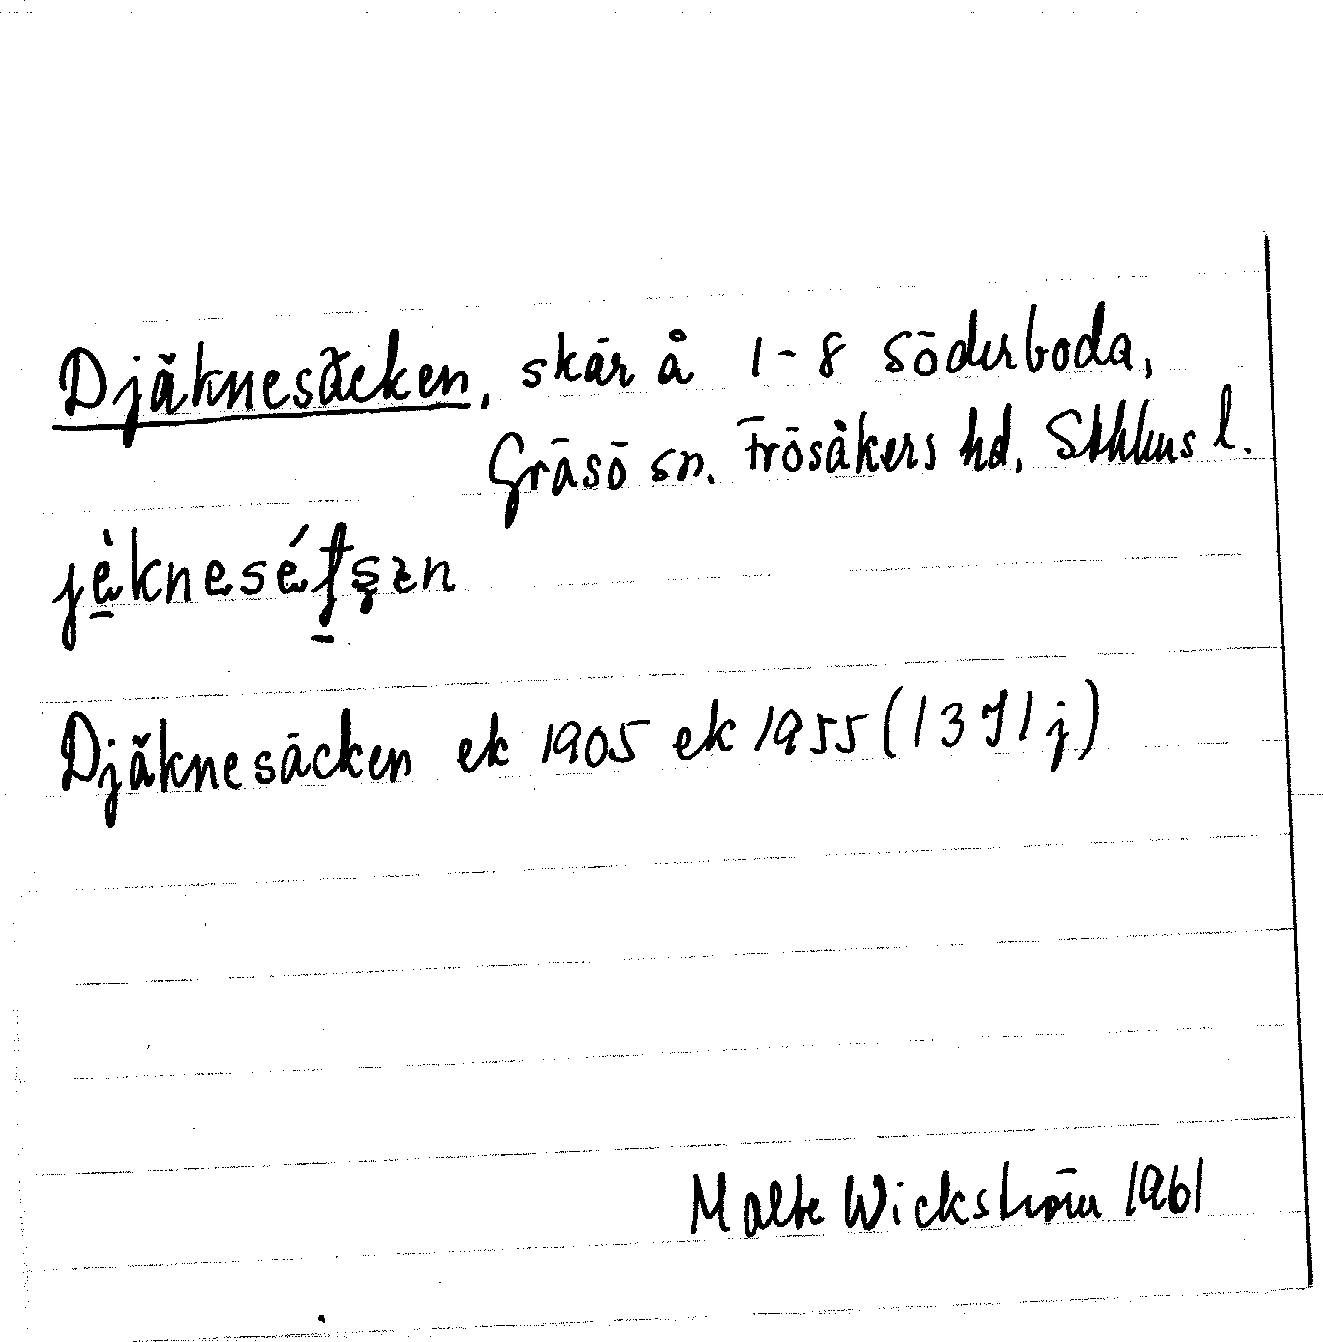 Djäknesäcken, skär å 1-8 Söderboda,
Gräsö sn. Frösåkers hd. Sthlms l.
Djäknesäcken ek 1905 ek 1955 (13 I 1 j)
Malte Wickström 1961